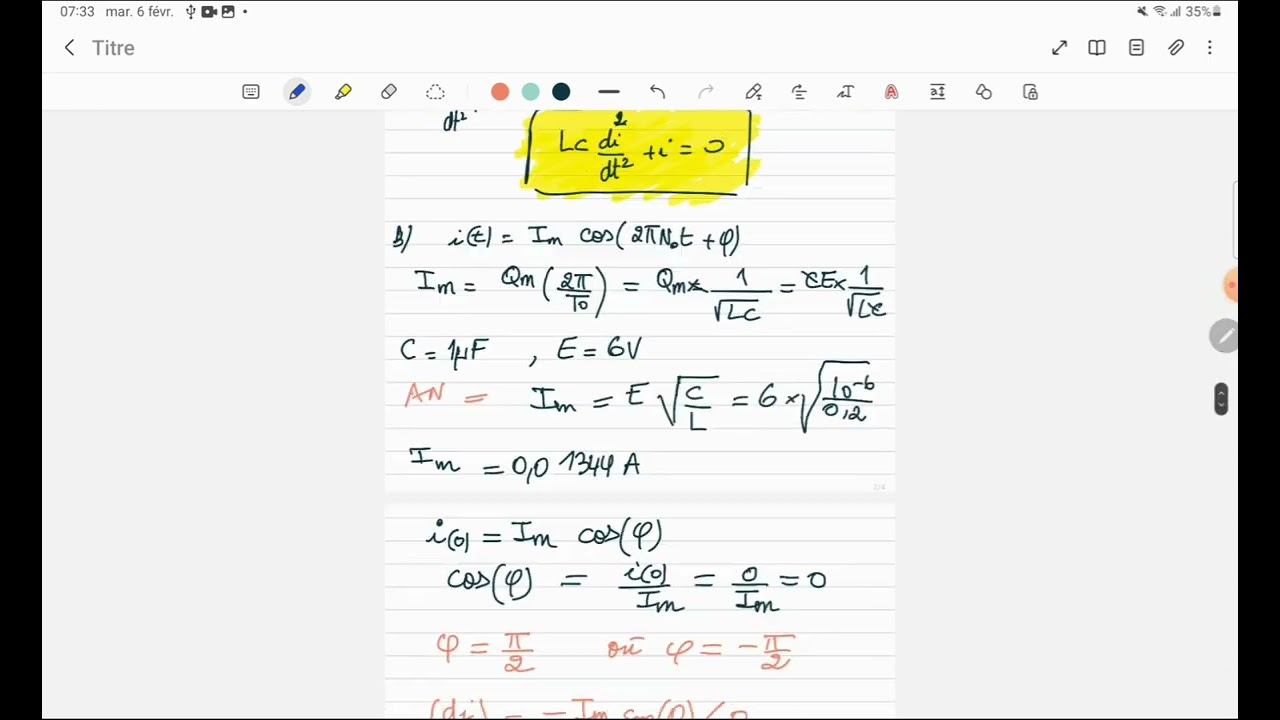 07:33 mar. 6 févr. 35%
Titre
dt²
LC d²i/dt² + i = 0
b) i(t) = Im cos(2πN₀t + φ)
Im = Qm (2π/T0) = Qm × 1/√LC = CE × 1/√LC
C = 1μF , E = 6V
AN = Im = E √(C/L) = 6 × √(10⁻⁶/0,2)
Im = 0,01344 A
2/4
i(0) = Im cos(φ)
cos(φ) = i(0)/Im = 0/Im = 0
φ = π/2 où φ = -π/2